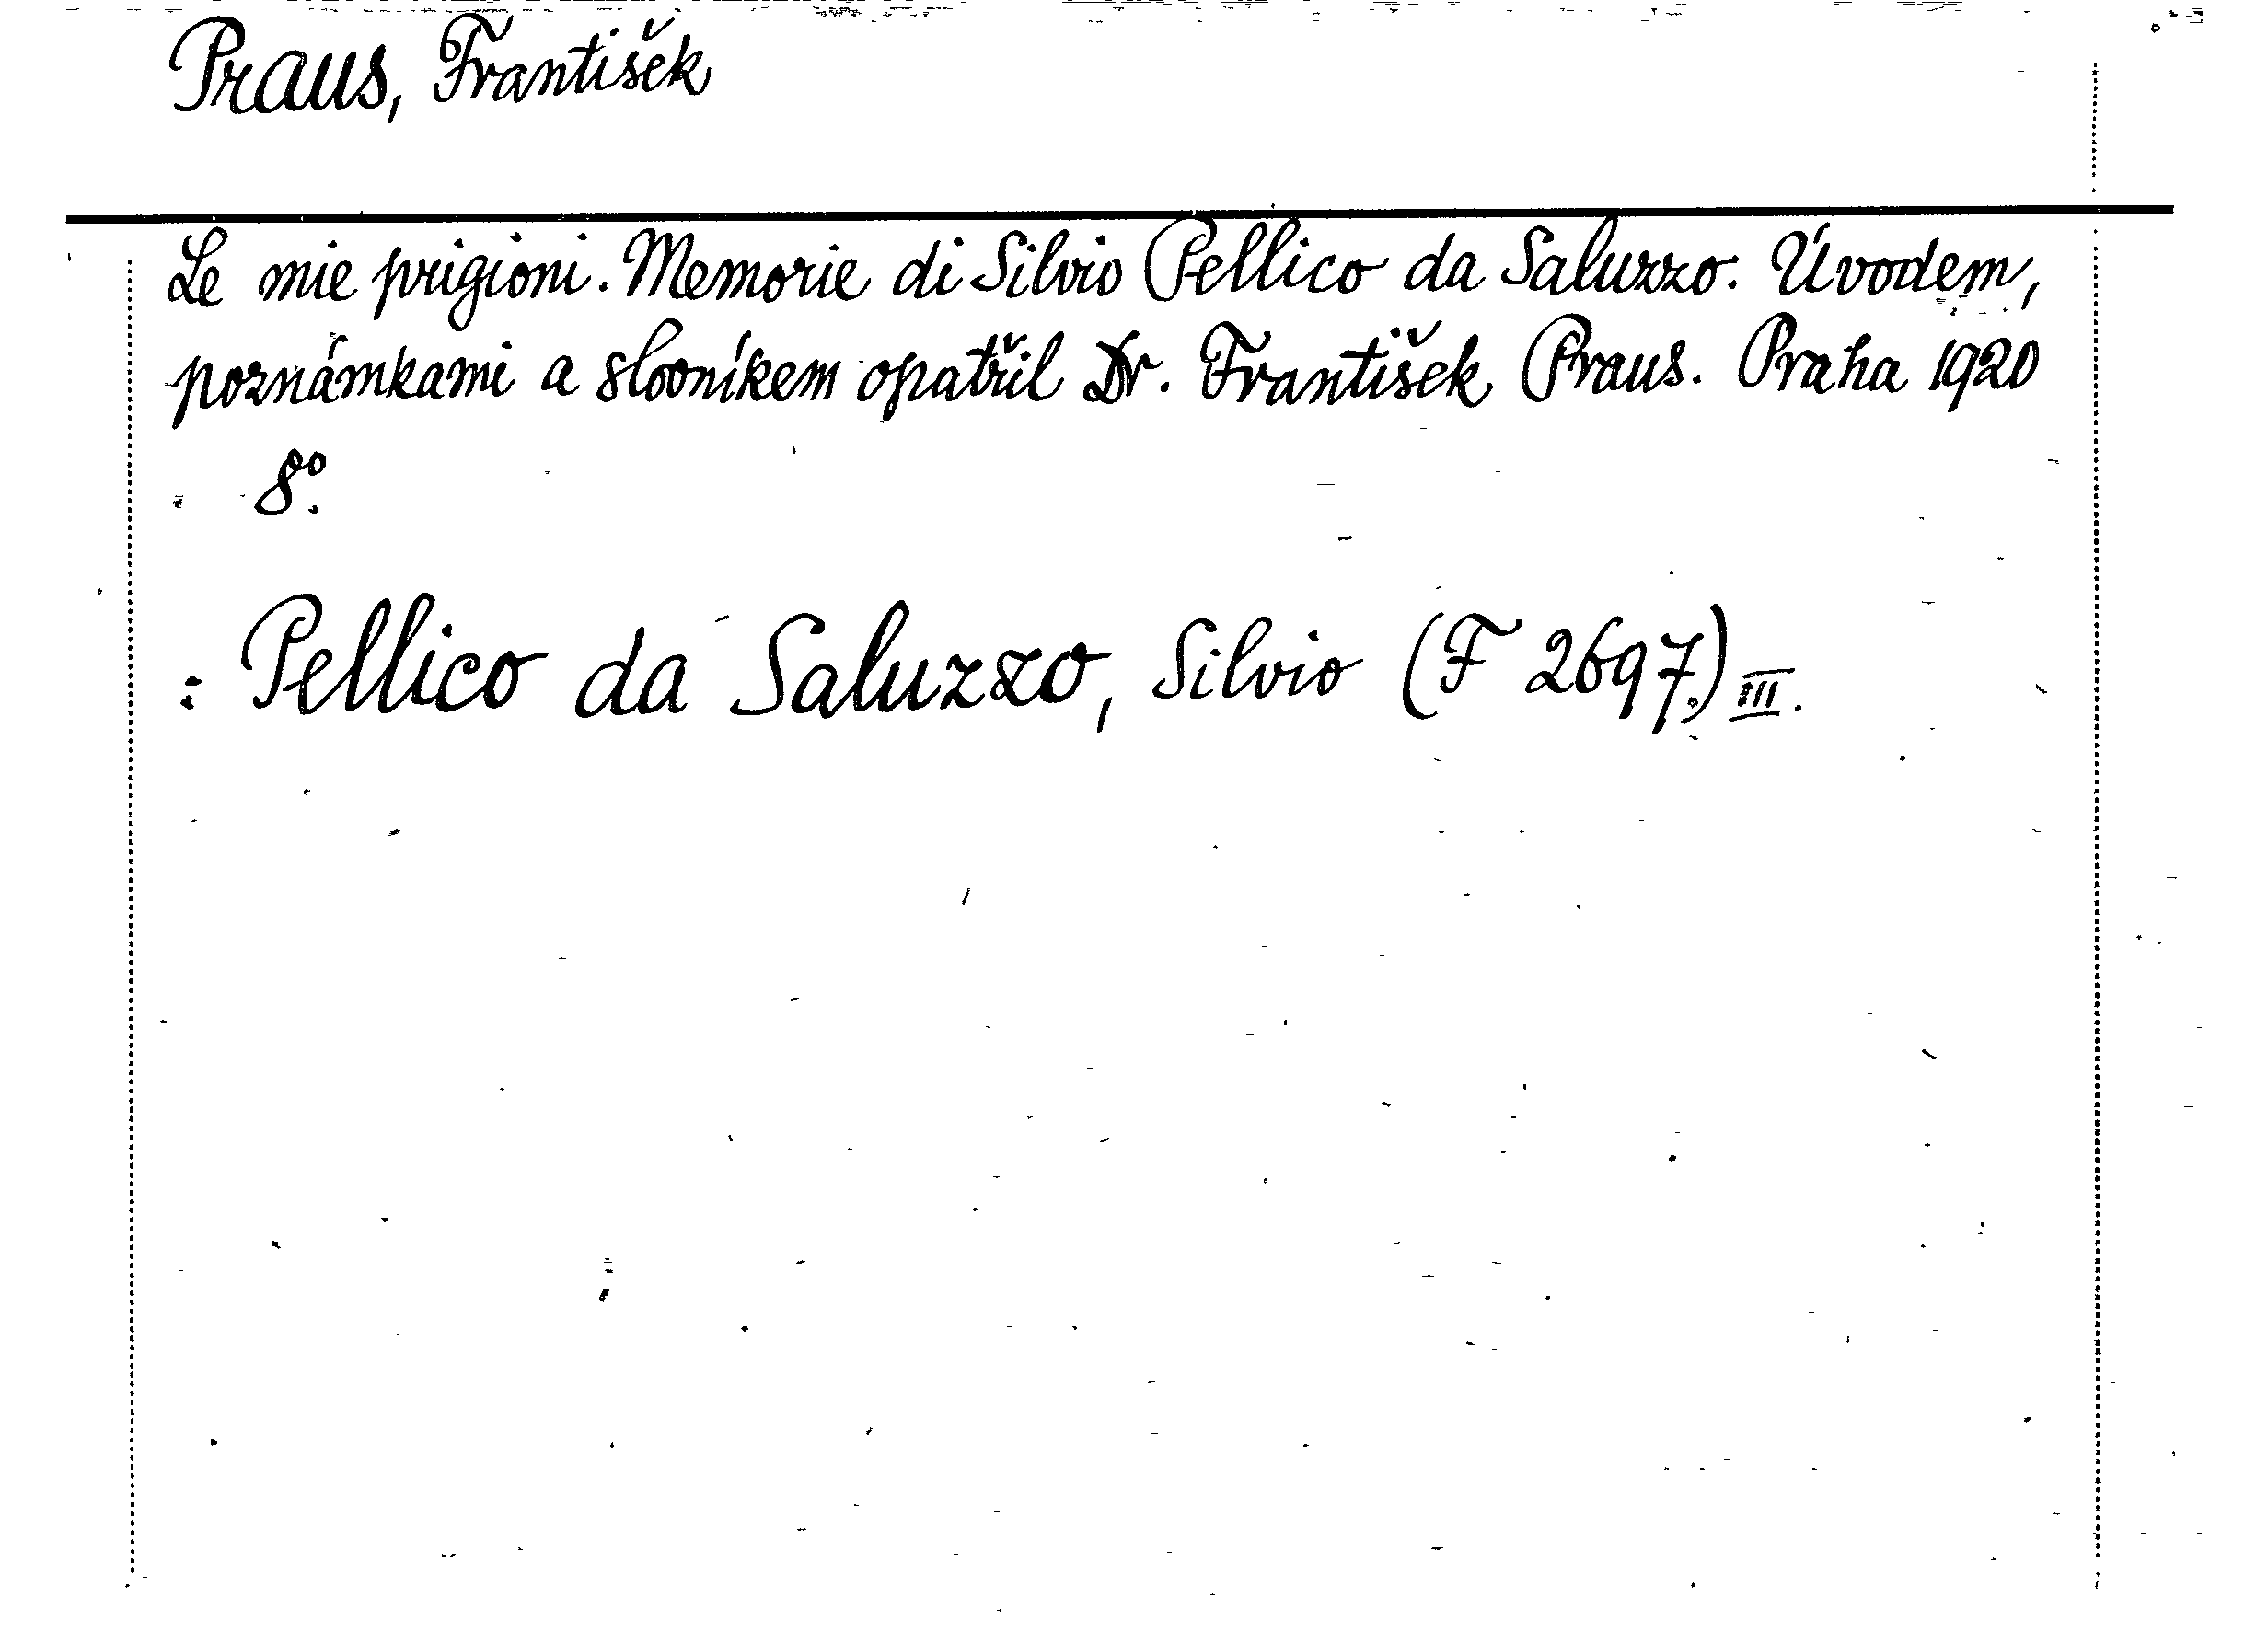 Praus, František
Le mie prigioni. Memorie di Silvio Pellico da Saluzzo. Úvodem,
poznámkami a slovníkem opatřil Dr. František Praus. Praha 1920
8º.
: Pellico da Saluzzo, Silvio (F 2697.) III.